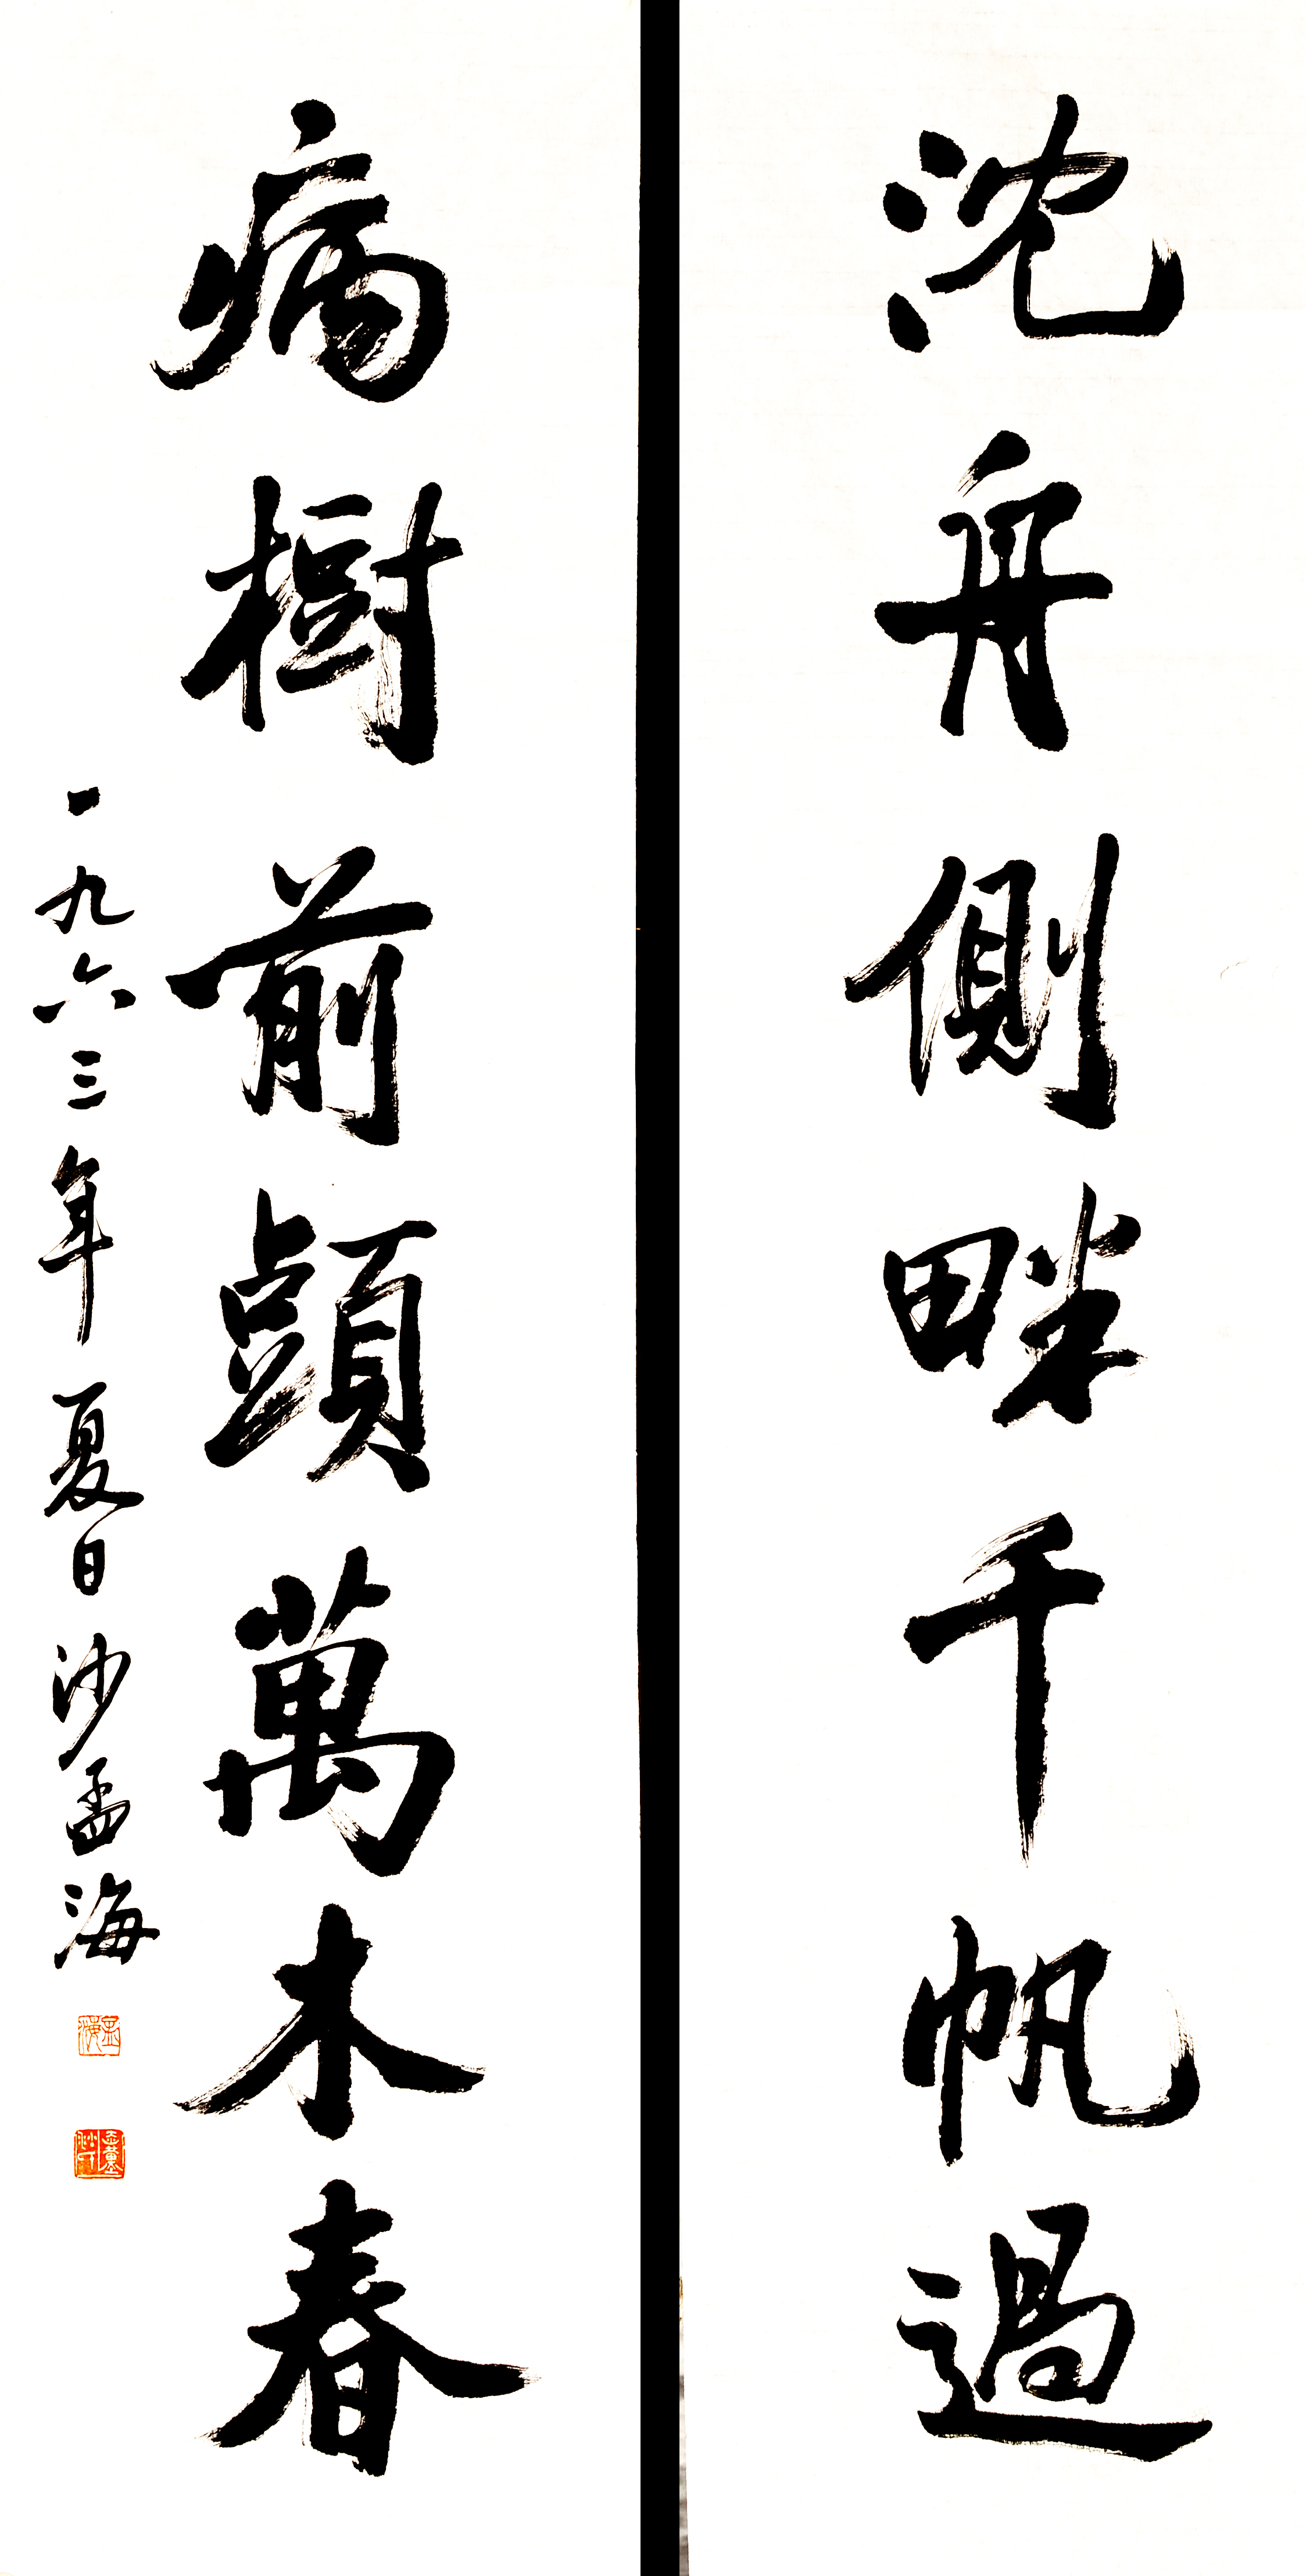 沈舟側畔千帆過
病樹前頭萬木春
一九六三年夏日沙孟海